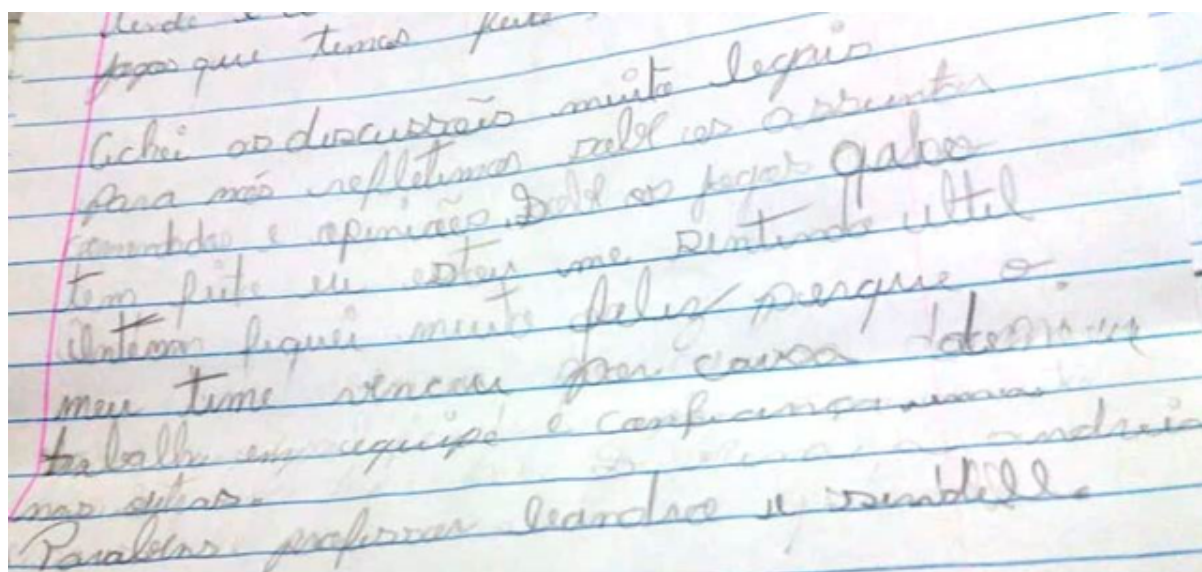 jogos que temos feito
Achei as discussão muito legais
Para nós refletimos sobre os assuntos
e opiniões. Sobre os jogos
tem feito eu estou me sentindo ultil
Ontem fiquei muito feliz porque o
meu time venceu por causa
trabalho em equipe e confiança
nas outras.
Parabens professor leandro e